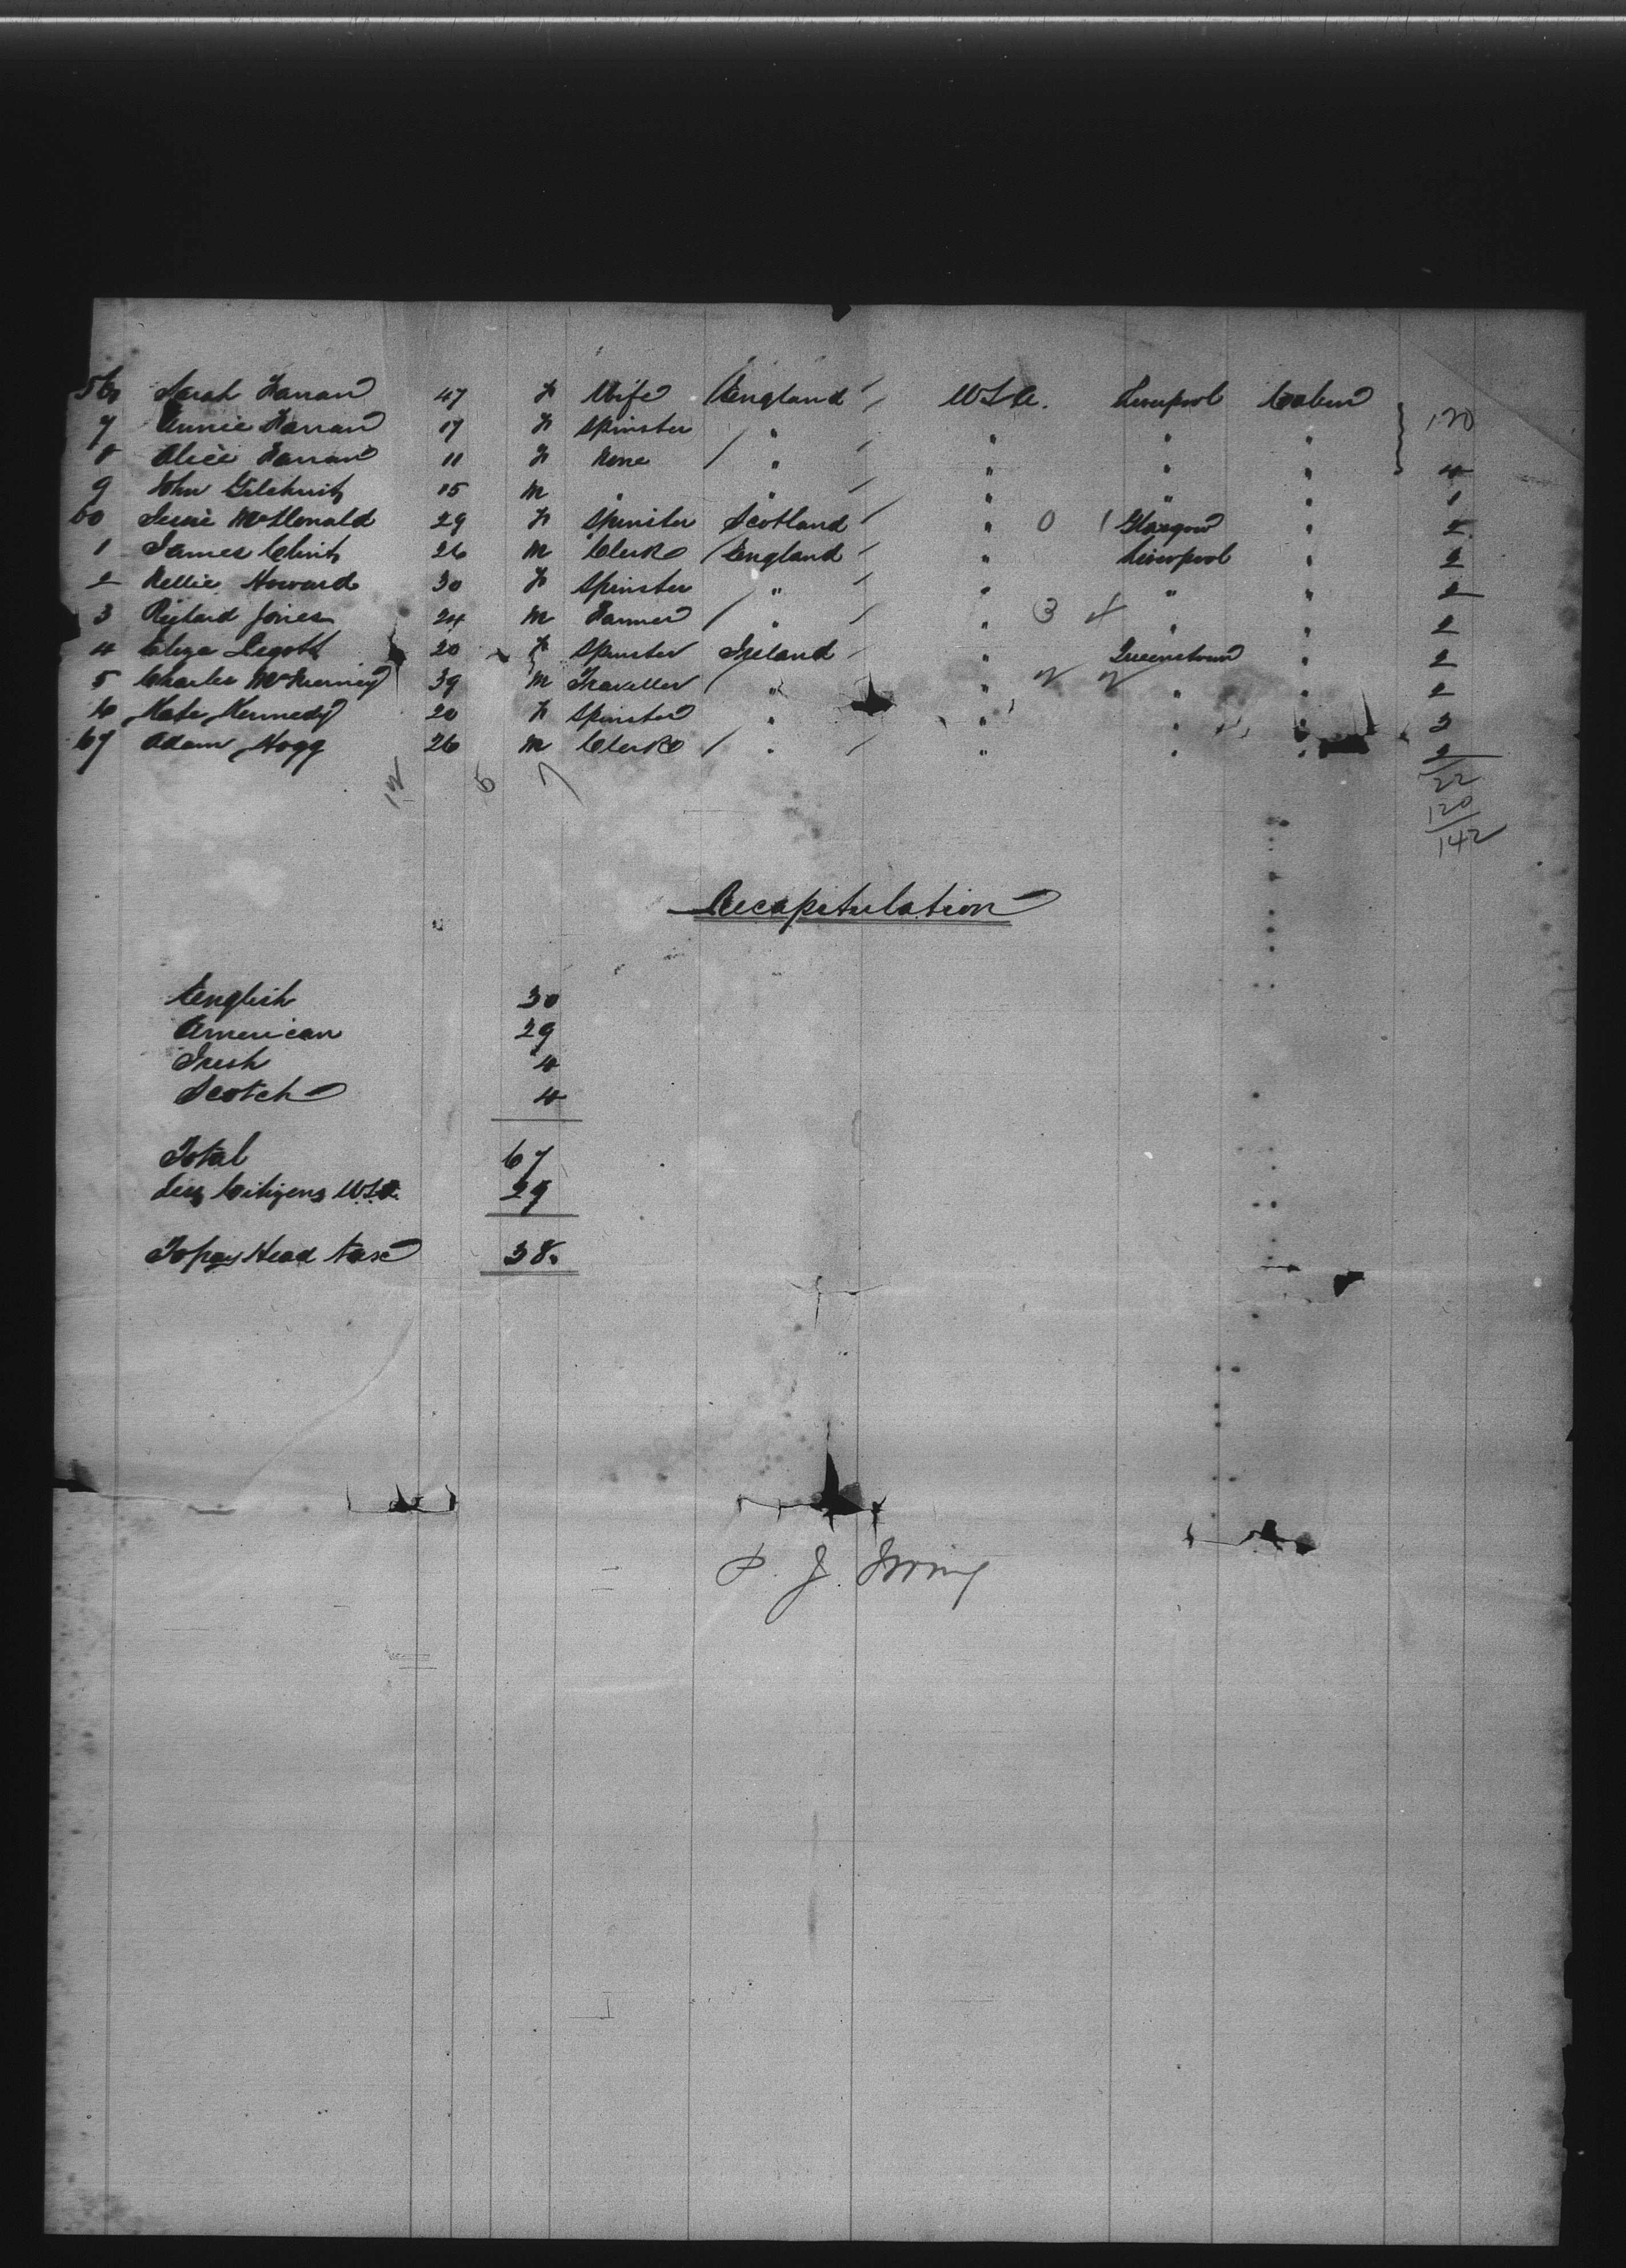 56 Sarah Farran 47 F Wife England U.S.A. Liverpool Cabin
7 Annie Farran 17 F Spinster " " " " 120
8 Alice Farran 11 F None " " " " 4
9 John Gilchrist 15 M " " " " " 1
60 Jessie McDonald 29 F Spinster Scotland " 0 1 Glasgow " 2
1 James Clint 26 M Clerk England " Liverpool " 2
2 Nellie Howard 30 F Spinster " " " " 2
3 Richard Jones 24 M Farmer " " 3 4 " " 2
4 Eliza Legott 20 F Spinster Ireland " Queenstown " 2
5 Charles 39 M Traveller " " 2 2 " " 2
6 Kate Kennedy 20 F Spinster " " " " 3
67 Adam Hogg 26 M Clerk " " " " 2
12 5 7 22
120
142
Recapitulation
English 30
American 29
Irish 4
Scotch 4
Total 67
Less Citizens U.S.A. 29
To pay Head tax 38.
P. J. Irving